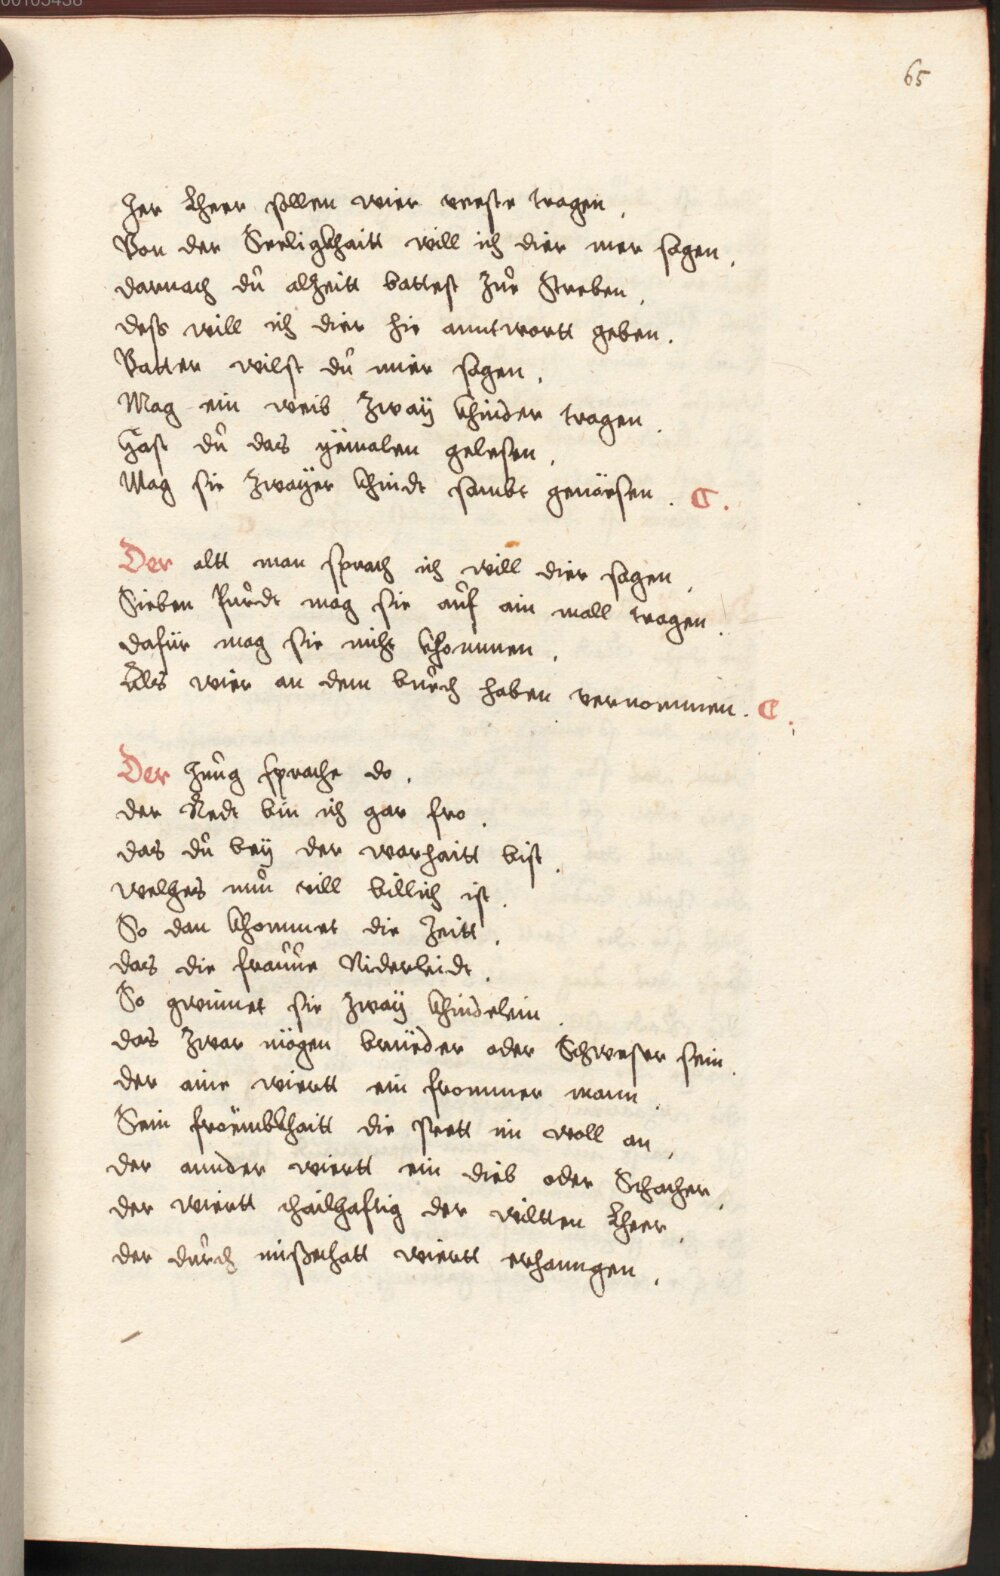 65
Her Kheer sollen wier veeste tragen,
Von der Seeligkhaitt will ich dier mer sagen,
darnach du alzeitt battest zur Streben,
dess will ich dier hie anntwortt geben.
Vatter wilst du mier sagen,
Mag ein weib zway khinder tragen.
Hast du das yemalen gelesen,
Mag sie zwayer khindt sambt genäesen. C.
Der altt man sprach ich will dier sagen,
Sieben Purdt mag sie auf ain mall tragen.
dafür mag sie nicht khommen,
Als wier an dem buech haben vernommen. C.
Der Jung sprache do,
der Redt bin ich gar fro.
das du bey der warhaitt bist,
welches nun vill billich ist.
So dan khommet die Zeitt,
das die frauue Niderleidt.
So gwinnet sie zway khindelein,
das zwar mögen brüeder oder Schwester sein.
der aine wiertt ein frommer mann,
Sein froümbkhaitt die steett im woll an,
der annder wiertt ein dieb oder Schacher,
der wiertt thailhaftig der wiltten Kheer,
der durch missethatt wiertt erhanngen,